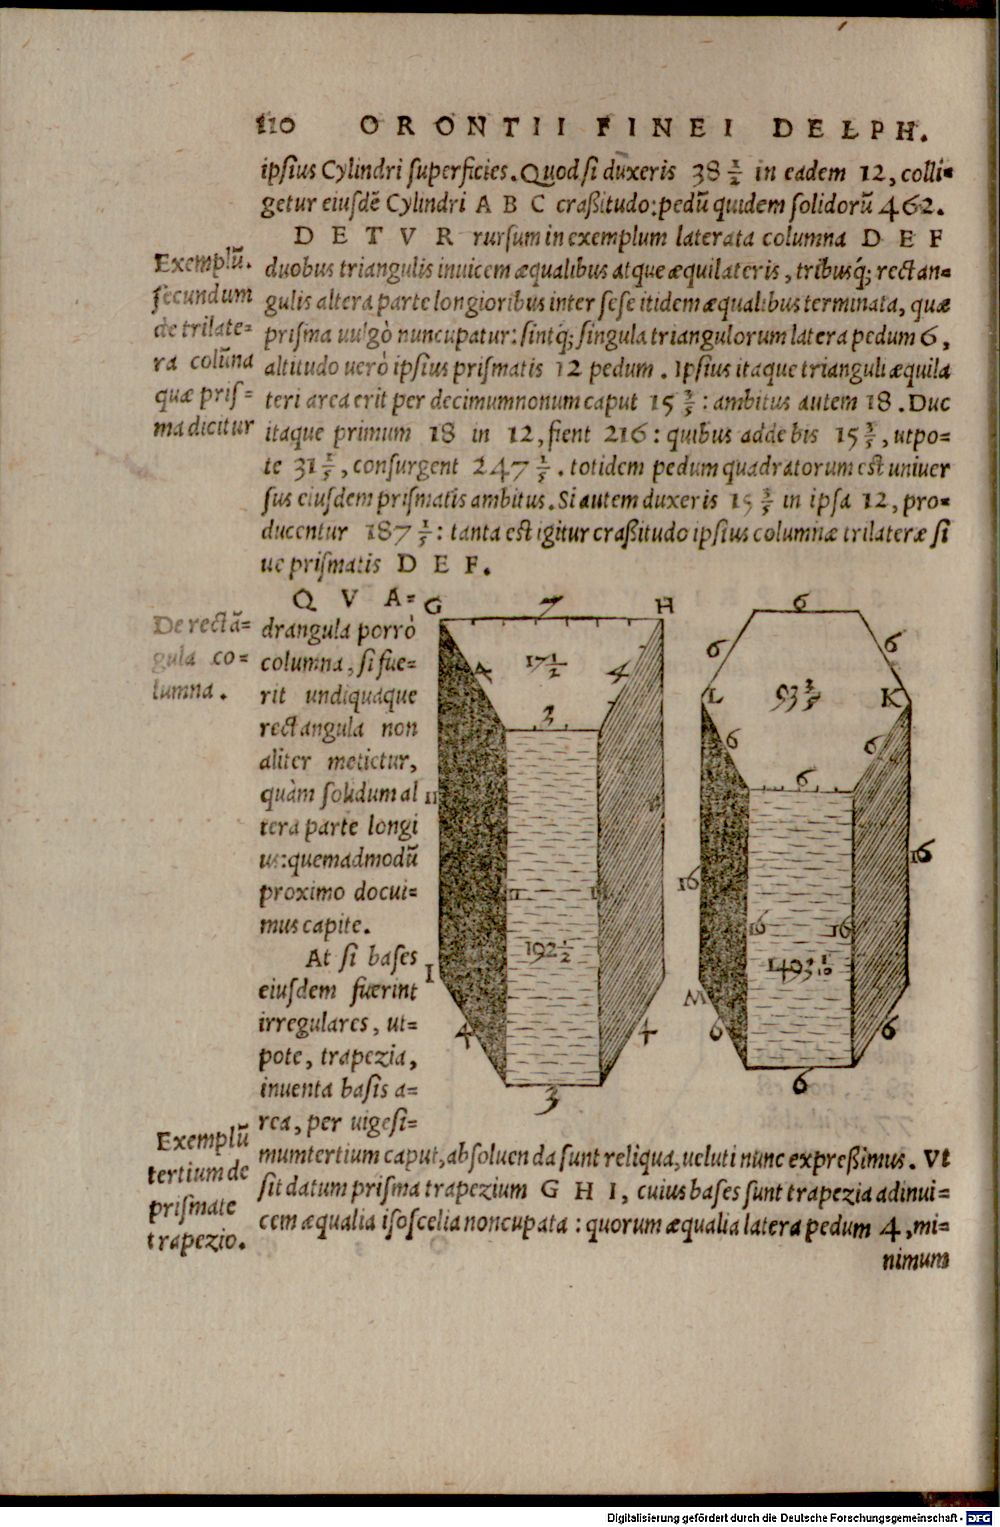 110 ORONTII FINEI DELPH.
ipsius Cylindri superficies. Quod si duxeris 38 1/2 in eadem 12, colli-
getur eiusdē Cylindri A B C craßitudo: pedū quidem solidorū 462.
D E T V R rursum in exemplum laterata columna D E F
duobus triangulis inuicem æqualibus atque æquilateris, tribusq; rectan-
gulis altera parte longioribus inter sese itidem æqualibus terminata, quæ
prisma uulgò nuncupatur: sintq; singula triangulorum latera pedum 6,
altitudo uerò ipsius prismatis 12 pedum. Ipsius itaque trianguli æquila
teri area erit per decimumnonum caput 15 3/5: ambitus autem 18. Duc
itaque primum 18 in 12, fient 216: quibus adde bis 15 3/5, utpo-
te 31 1/5, consurgent 247 1/5. totidem pedum quadratorum est uniuer
sus eiusdem prismatis ambitus. Si autem duxeris 15 3/5 in ipsa 12, pro-
ducentur 187 1/5: tanta est igitur craßitudo ipsius columnæ trilateræ si
ue prismatis D E F.
Exemplū
secundum
de trilate-
ra colūna
quæ pris-
ma dicitur
Q V A-
drangula porrò
columna, si fue-
rit undiquaque
rectangula non
aliter metietur,
quàm solidum al
tera parte longi
us: quemadmodū
proximo docui-
mus capite.
De rectā-
gula co-
lumna.
At si bases
eiusdem fuerint
irregulares, ut-
pote, trapezia,
inuenta basis a-
rea, per uigesi-
mumtertium caput, absoluenda sunt reliqua, ueluti nunc expreßimus. Vt
sit datum prisma trapezium G H I, cuius bases sunt trapezia adinui-
cem æqualia isoscelia noncupata: quorum æqualia latera pedum 4, mi-
nimum
Exemplū
tertium de
prismate
trapezio.
G 7 H
17 1/2
4 4
3
11
11 11
192 1/2
I
4 4
3
6
6 6
L 93 3/5 K
6 6
6
16 16
16 16
1493 1/10
M
6 6
6
Digitalisierung gefördert durch die Deutsche Forschungsgemeinschaft - DFG